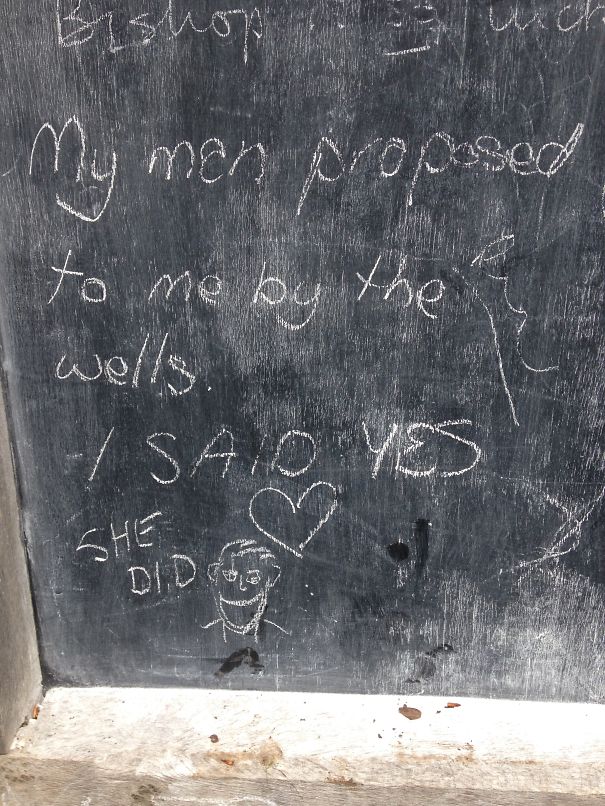 Bishop
My man proposed
to me by the
wells.
I SAID YES
SHE
DID